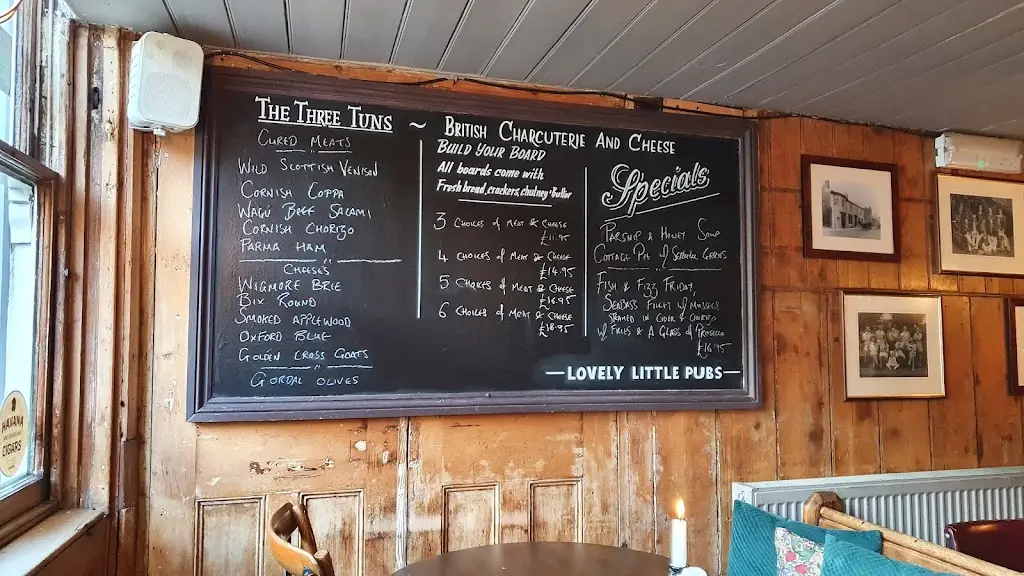 THE THREE TUNS ~ BRITISH CHARCUTERIE AND CHEESE
CURED MEATS
WILD SCOTTISH VENISON
CORNISH COPPA
WAGU BEEF SALAMI
CORNISH CHORIZO
PARMA HAM
CHEESES
WIGMORE BRIE
BIX ROUND
SMOKED APPLEWOOD
OXFORD BLUE
GOLDEN CROSS GOATS
GORDAL OLIVES
BUILD YOUR BOARD
All boards come with
Fresh bread, crackers, chutney + butter
3 CHOICES of MEAT & CHEESE
£11.95
4 CHOICES of MEAT & CHEESE
£14.95
5 CHOICES of MEAT & CHEESE
£16.95
6 CHOICES of MEAT & CHEESE
£18.95
Specials
PARSNIP & HONEY SOUP
COTTAGE PIE w/ SEASONAL GREENS
FISH & FIZZ FRIDAY,
SEABASS FILLET w/ MUSSELS
STEAMED IN CIDER & CHORIZO
w/ FRIES & A GLASS of PROSECCO
£16.95
—LOVELY LITTLE PUBS—
HAVANA
CIGARS